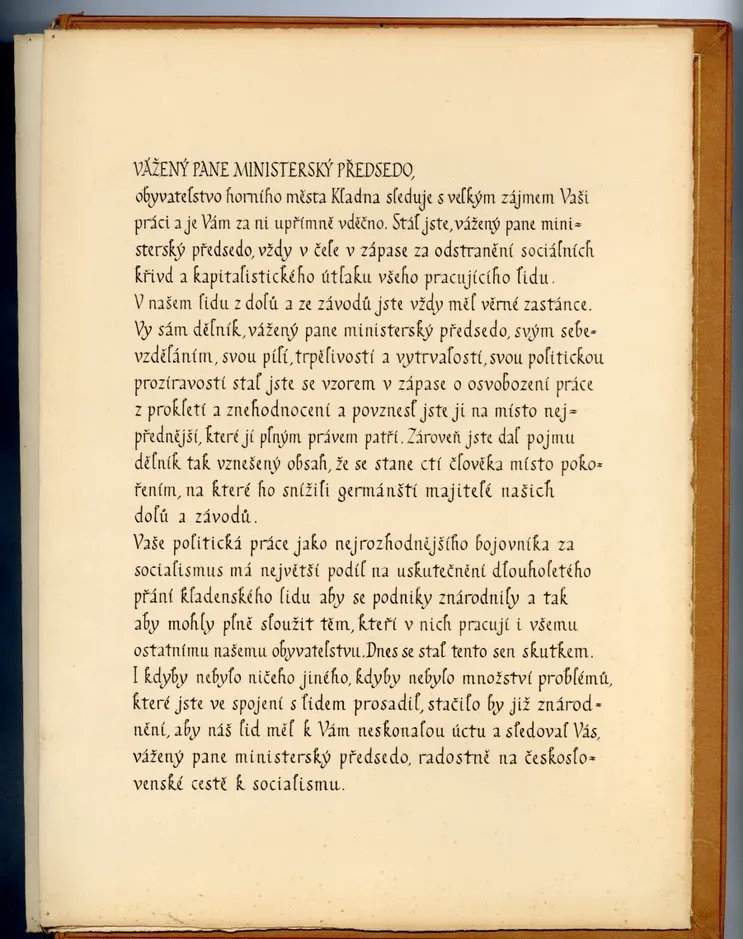 VÁŽENÝ PANE MINISTERSKÝ PŘEDSEDO,
obyvatelstvo horního města Kladna sleduje s velkým zájmem Vaši
práci a je Vám za ni upřímně vděčno. Stál jste, vážený pane mini=
sterský předsedo, vždy v čele v zápase za odstranění sociálních
křivd a kapitalistického útlaku všeho pracujícího lidu.
V našem lidu z dolů a ze závodů jste vždy měl věrné zastánce.
Vy sám dělník, vážený pane ministerský předsedo, svým sebe=
vzděláním, svou pílí, trpělivostí a vytrvalostí, svou politickou
prozíravostí stal jste se vzorem v zápase o osvobození práce
z prokletí a znehodnocení a povznesl jste ji na místo nej=
přednější, které jí plným právem patří. Zároveň jste dal pojmu
dělník tak vznešený obsah, že se stane ctí člověka místo poko=
řením, na které ho snížili germánští majitelé našich
dolů a závodů.
Vaše politická práce jako nejrozhodnějšího bojovníka za
socialismus má největší podíl na uskutečnění dlouholetého
přání kladenského lidu aby se podniky znárodnily a tak
aby mohly plně sloužit těm, kteří v nich pracují i všemu
ostatnímu našemu obyvatelstvu. Dnes se stal tento sen skutkem.
I kdyby nebylo ničeho jiného, kdyby nebylo množství problémů,
které jste ve spojení s lidem prosadil, stačilo by již znárod=
nění, aby náš lid měl k Vám neskonalou úctu a sledoval Vás,
vážený pane ministerský předsedo, radostně na českoslo=
venské cestě k socialismu.